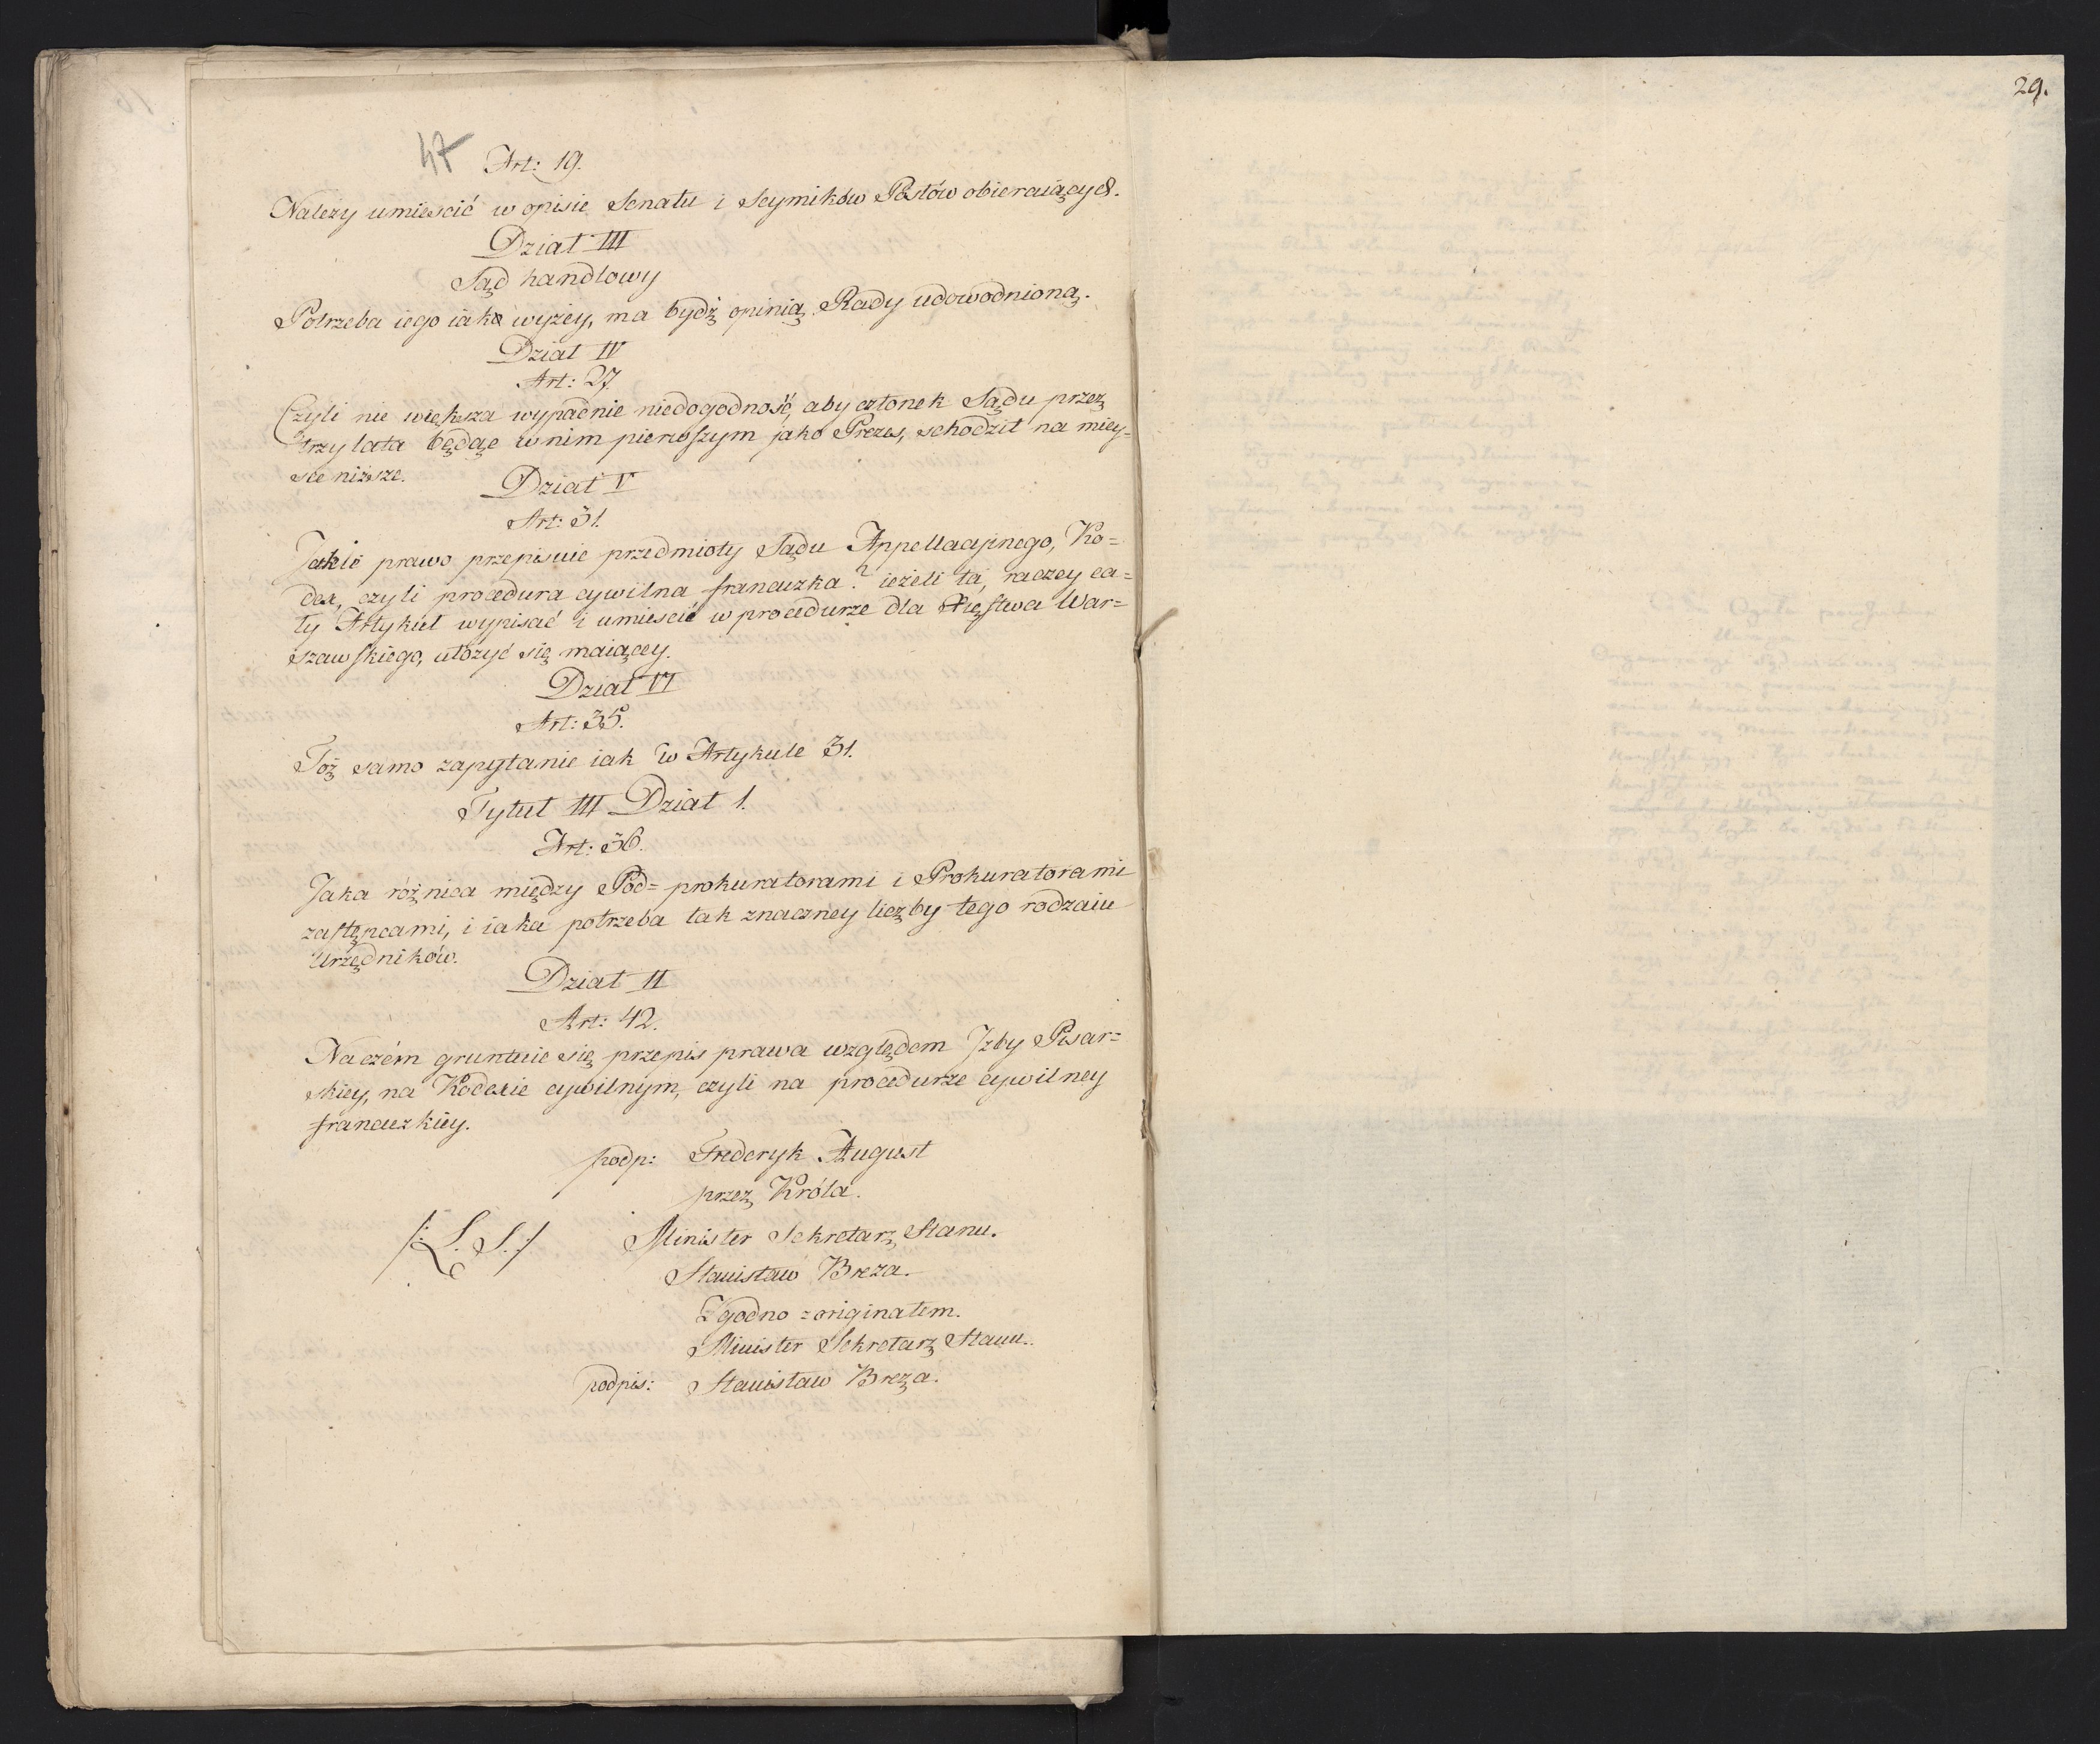 47 Art: 19.
Należy umiescić w opisie Senatu i Seymików Posłów obieraiących.
Dział III
Sąd handlowy
Potrzeba iego iako wyżey, ma bydź opinią Rady udowodnioną.
Dział IV
Art: 27.
Czyli nie większa wypadnie niedogodność, aby członek Sądu przez
trzy lata będąc w nim pierwszym jako Prezes, schodził na miey=
sce niższe.
Dział V
Art: 31.
Jakie prawo przepisuie przedmioty Sądu Appellacyinego, Ko=
dex, czyli procedura cywilna francuzka? ieżeli ta, raczey ca=
ły Artykuł wypisać i umiescić w procedurze dla Xięstwa War=
szawskiego, ułożyć się maiącey.
Dział VI
Art: 35.
Toż samo zapytanie iak w Artykule 31.
Tytuł III Dział 1.
Art: 36.
Jaka różnica między Pod=prokuratorami i Prokuratorami
zastępcami, i iaka potrzeba tak znaczney liczby tego rodzaiu
Urzędników.
Dział II
Art: 42.
Na czém gruntuie się przepis prawa względem Izby Pisar=
skiey, na Kodexie cywilnym, czyli na procedurze cywilney
francuzkiey.
podp: Frederyk August
przez Króla.
/: L. S. :/ Minister Sekretarz Stanu.
Stanisław Breza.
Zgodno z originałem.
Minister Sekretarz Stanu.
podpis: Stanisław Breza.
29.